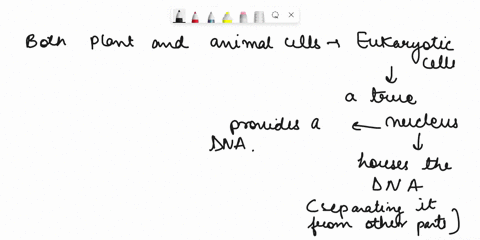 Both plant and animal cells → Eukaryotic
cells
↓
a true
provides a ← nucleus
DNA. ↓
houses the
DNA
(separating it
from other parts)